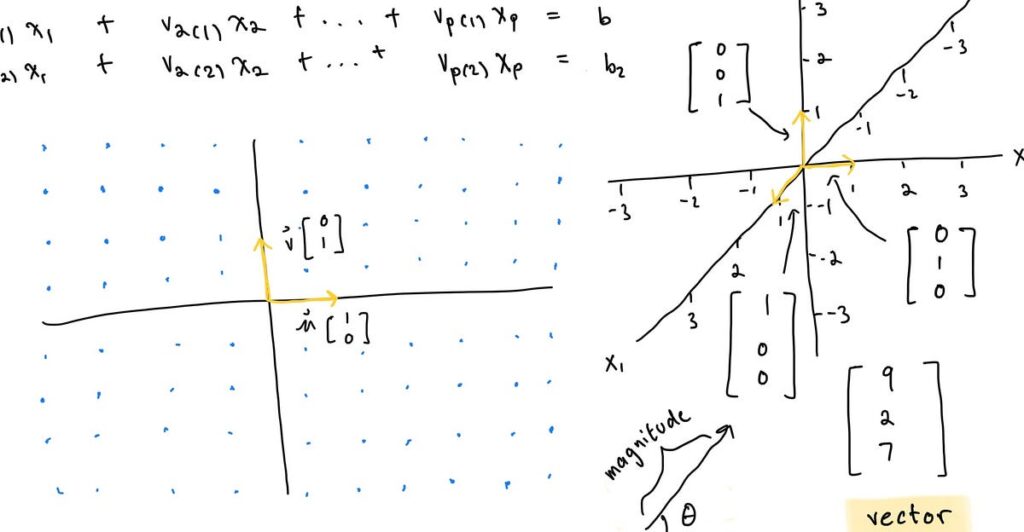 1) x₁ + v₂₍₁₎ x₂ + . . . + vₚ₍₁₎ xₚ = b
2) x₁ + v₂₍₂₎ x₂ + . . . + vₚ₍₂₎ xₚ = b₂
v [ 0
1 ]
u [ 1
0 ]
3
2
1
[ 0
0
1 ]
-3
-2
-1
-3 -2 -1 1 2 3 X
-1
-2
-3
1
2
3
X₁
[ 0
1
0 ]
[ 1
0
0 ]
[ 9
2
7 ]
magnitude
θ
vector